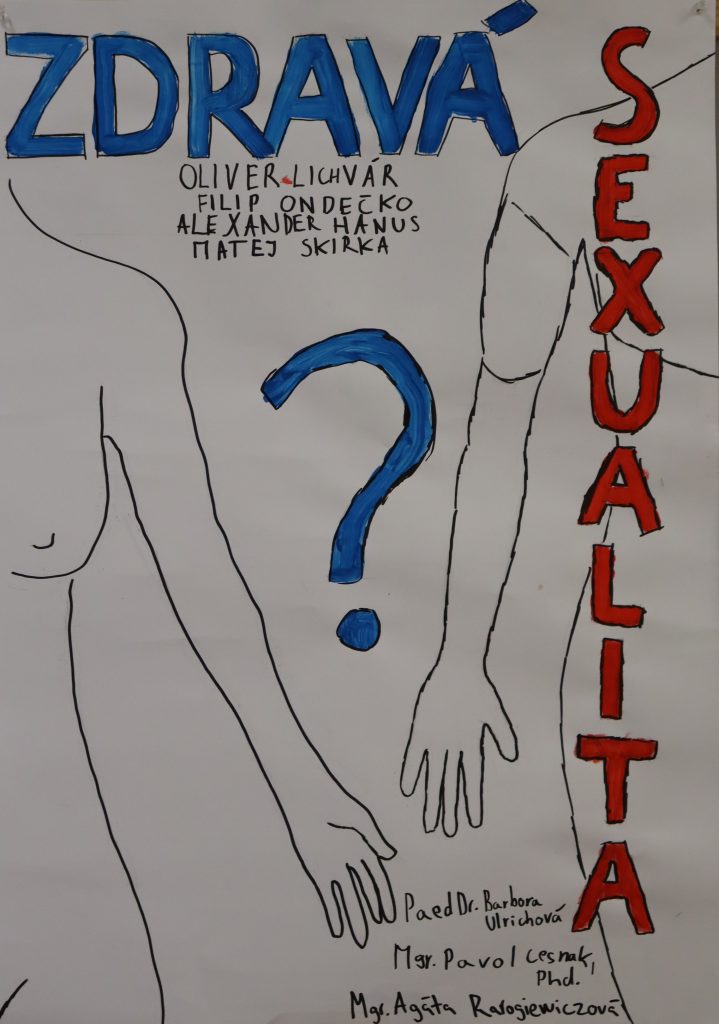 ZDRAVÁ
SEXUALITA
OLIVER LICHVÁR
FILIP ONDEČKO
ALEXANDER HANUS
MATEJ SKIRKA
?
PaedDr. Barbora
Ulrichová
Mgr. Pavol Cesnak,
Phd.
Mgr. Agáta Rarogiewiczová